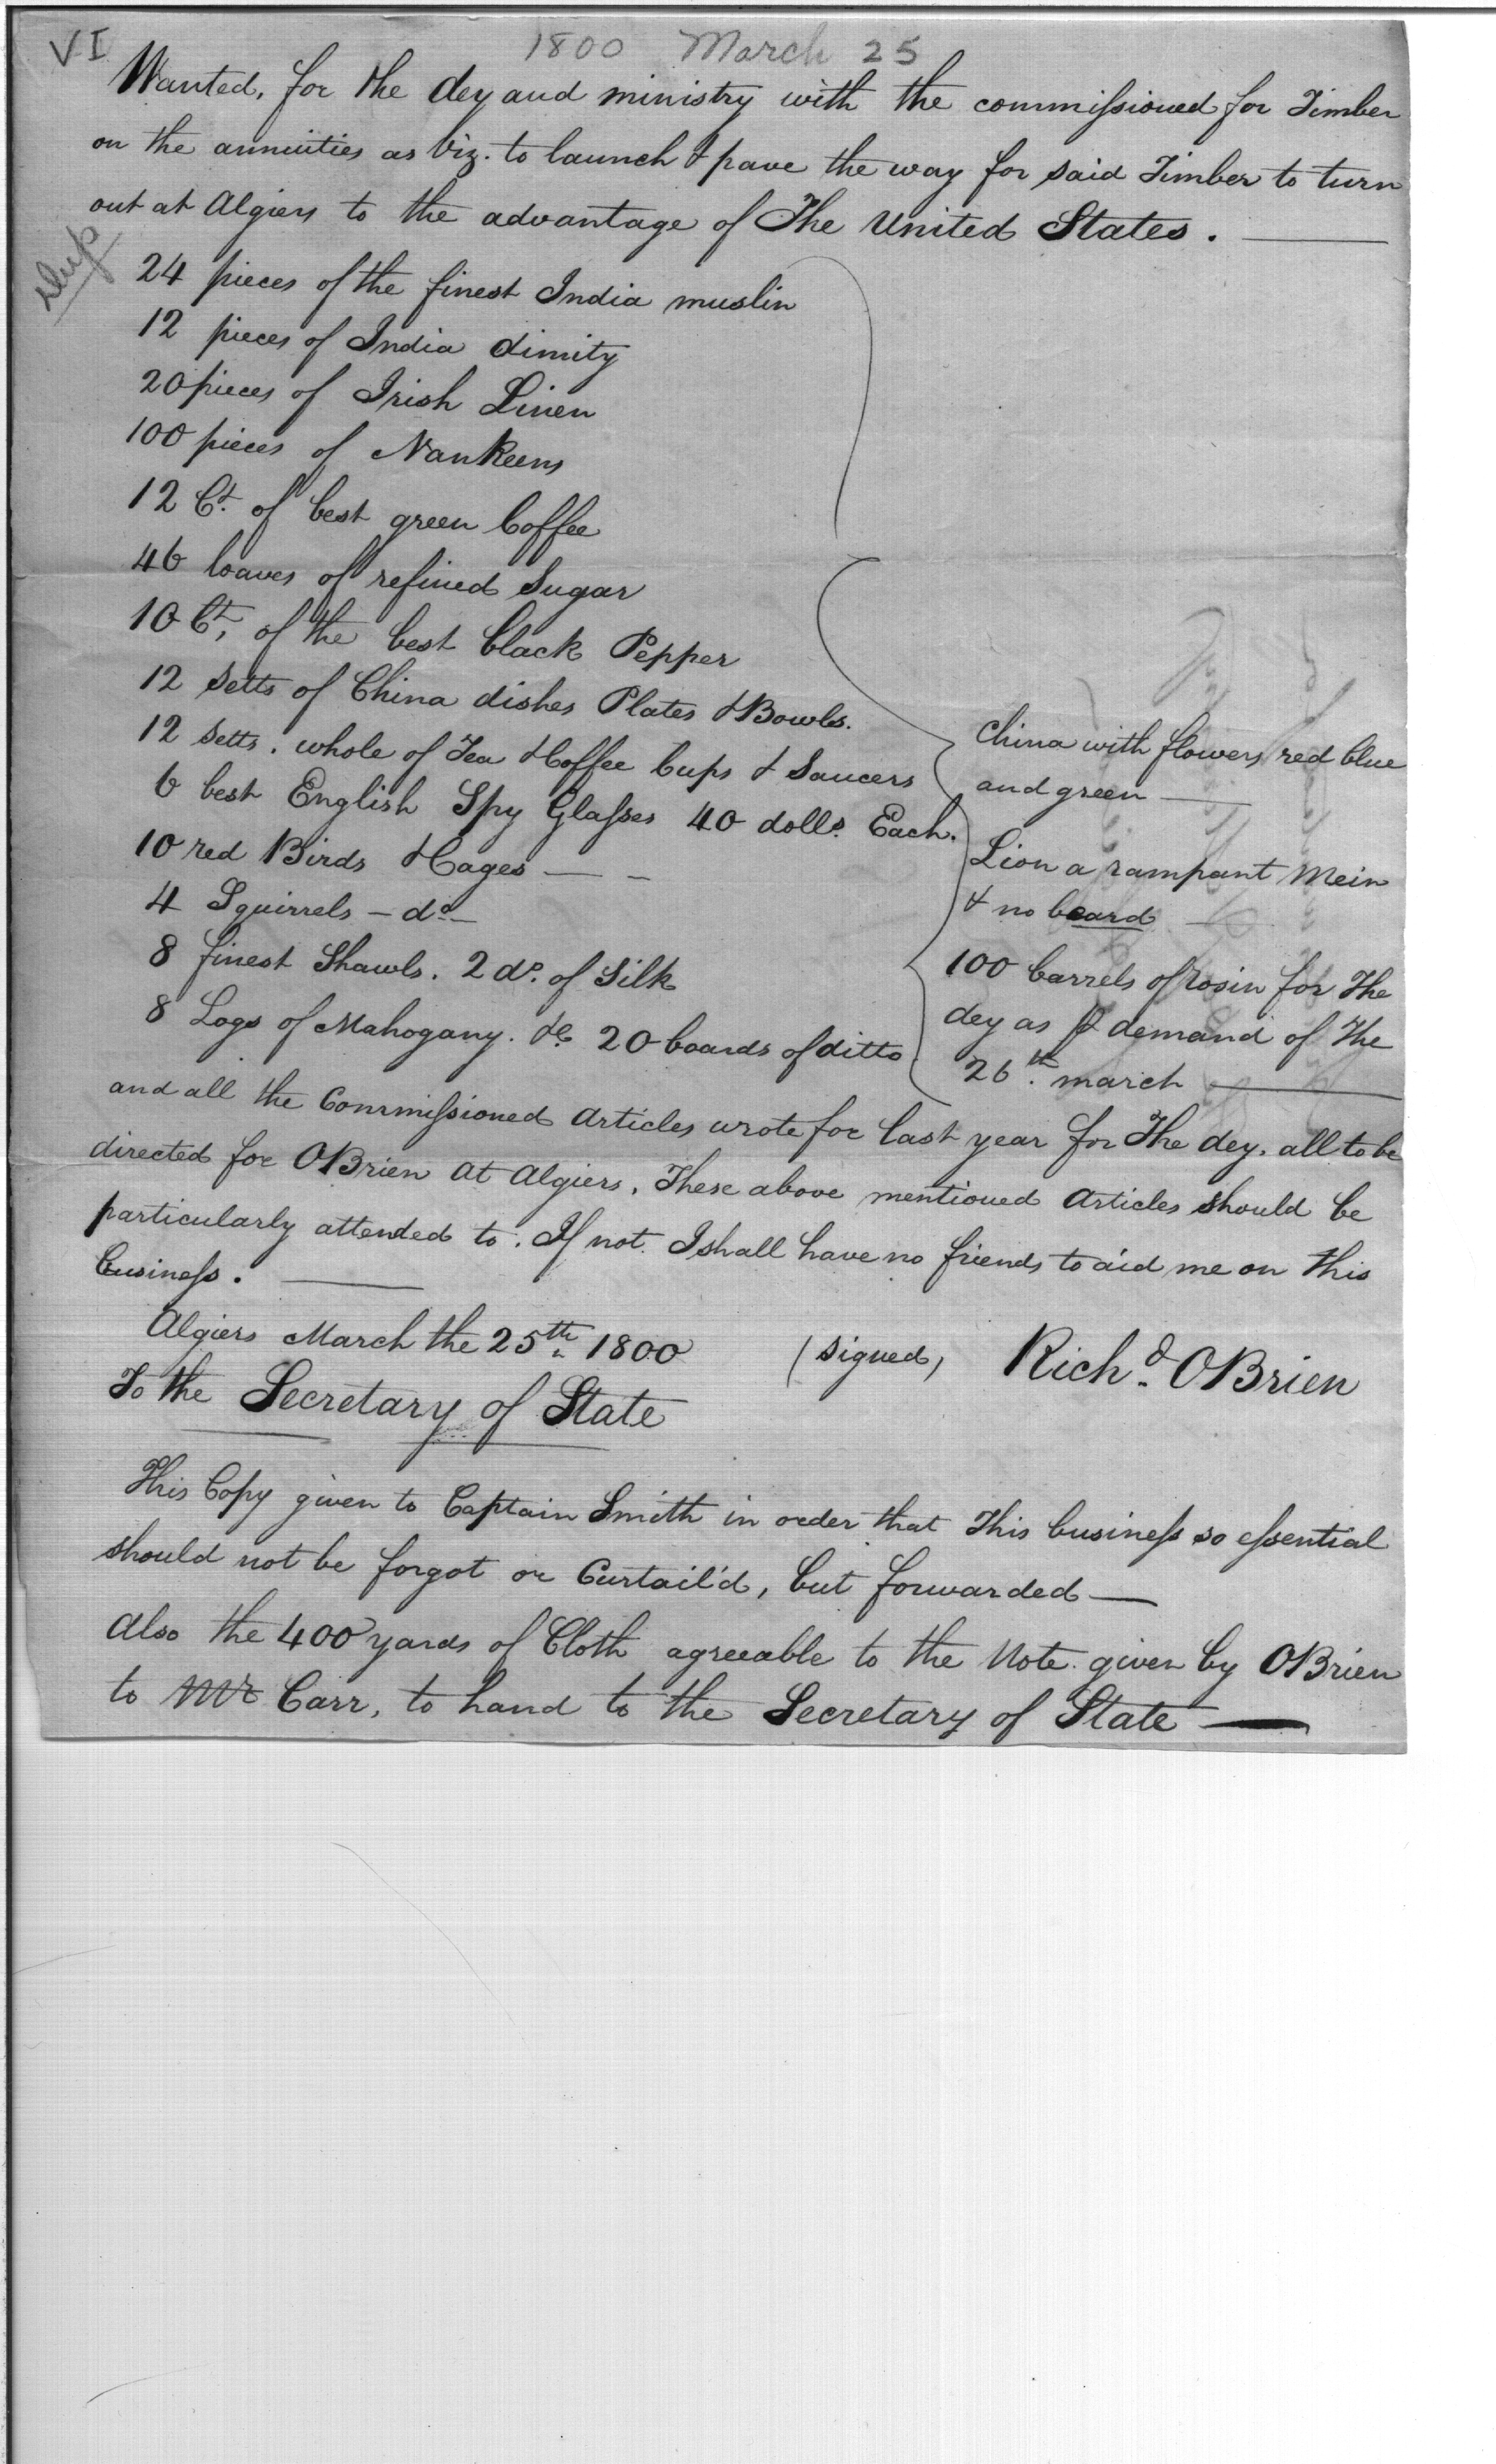 VI
1800 March 25
Wanted, for the dey and ministry with the commissioned for Timber
on the annuities as Viz. to launch & pave the way for said Timber to turn
out at Algiers to the advantage of The United States.
dup
24 pieces of the finest India muslin
12 pieces of India dimity
20 pieces of Irish Linen
100 pieces of Nankeens
12 Ct. of best green Coffee
46 loaves of refined Sugar
10 Ct, of the best black Pepper
12 Setts of China dishes Plates & Bowls.
12 Setts. whole of Tea & Coffee Cups & Saucers
6 best English Spy Glasses 40 dolls. Each.
10 red Birds & Cages — —
4 Squirrels – do —
8 finest Shawls. 2 do. of Silk
8 Logs of Mahogany. &c. 20 boards of ditto
China with flowers red blue
and green —
Lion a rampant Mein
& no beard
100 barrels of rosin for The
dey as demand of The
26th. march —
and all the Commissioned Articles wrote for last year for The dey. all to be
directed for OBrien at Algiers. These above mentioned Articles should be
particularly attended to. If not. I shall have no friends to aid me on this
business. —
Algiers March the 25th. 1800
(signed) Richd. OBrien
To the Secretary of State
This Copy given to Captain Smith in order that This business so essential
should not be forgot or Curtail'd, but forwarded —
Also the 400 yards of Cloth agreeable to the Note. given by OBrien
to Mr Carr, to hand to the Secretary of State —